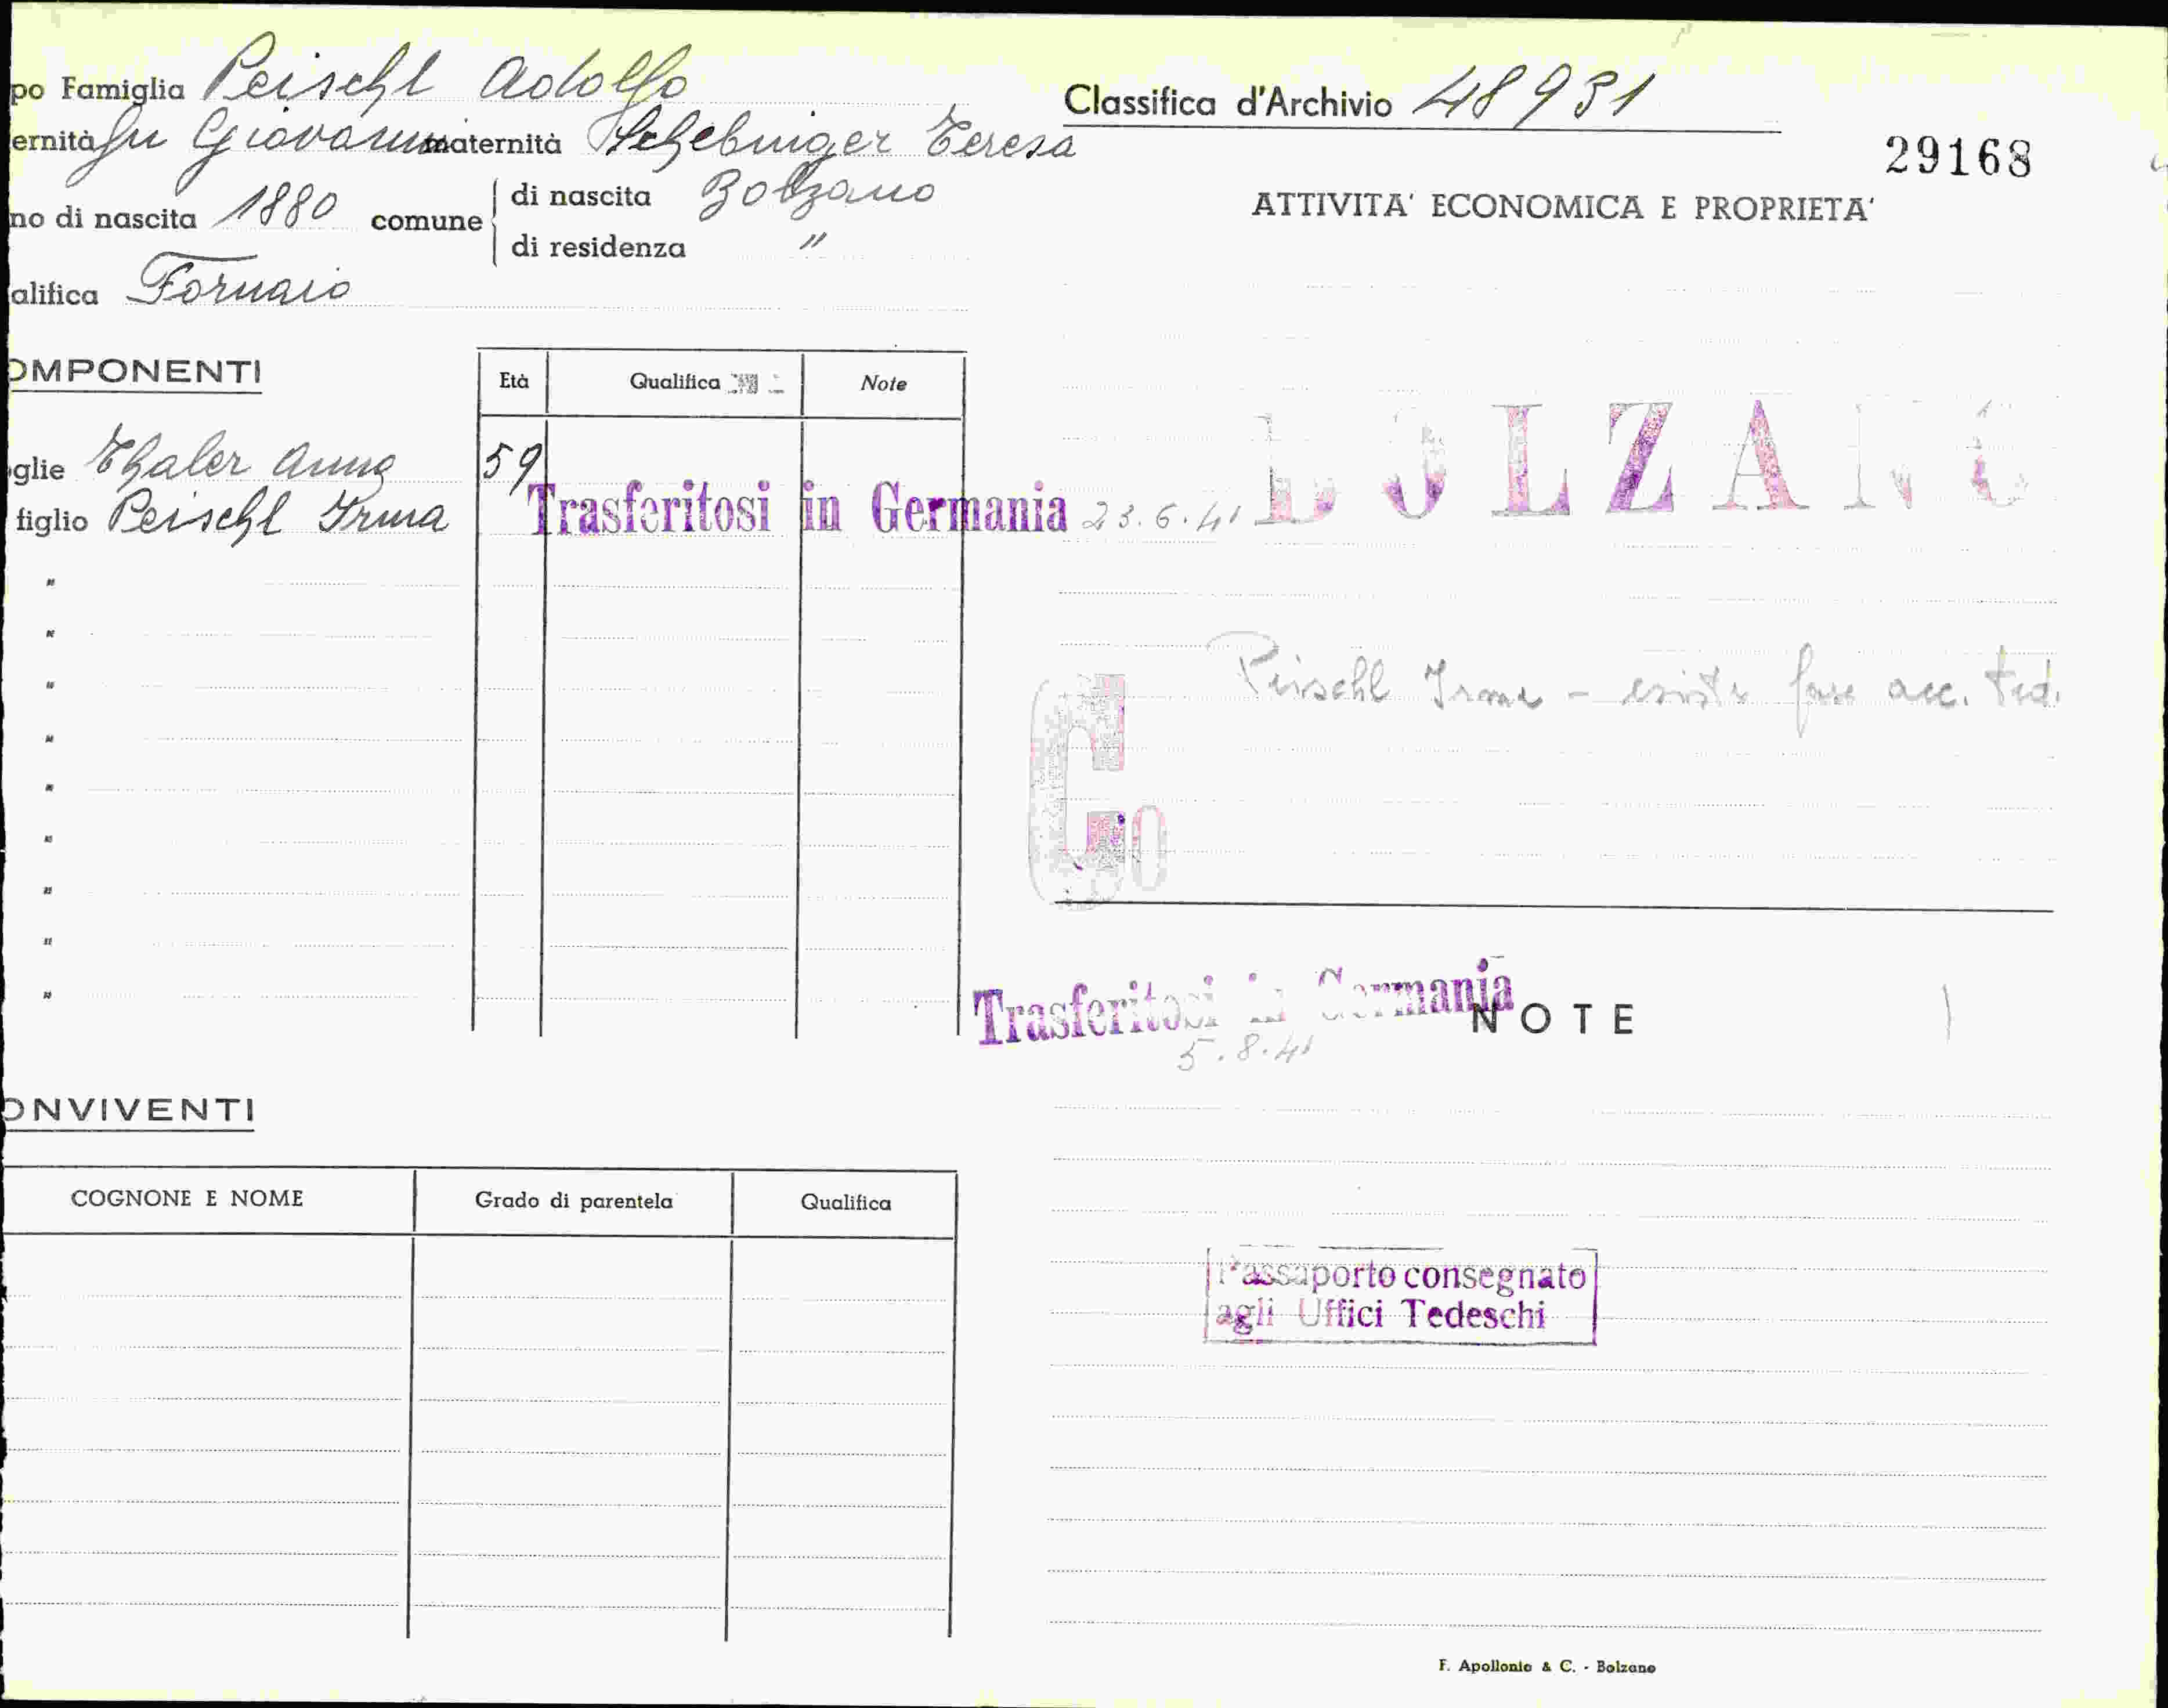 po Famiglia Peischl Adolfo
ernità fu Giovanni maternità Schebinger Teresa
no di nascita 1880 comune di nascita Bolzano
di residenza "
alifica Fornaio
OMPONENTI
Età Qualifica Note
glie Thaler Anna 59
figlio Peischl Irma Trasferitosi in Germania 23.6.41
"
"
"
"
"
"
"
"
"
ONVIVENTI
COGNONE E NOME Grado di parentela Qualifica
Classifica d'Archivio 48931
29168
ATTIVITA' ECONOMICA E PROPRIETA'
BOLZANO
Peischl Irma - esiste fasc acc. ted.
Co
Trasferitosi in Germania
5.8.41
NOTE
Passaporto consegnato
agli Uffici Tedeschi
F. Apollonio & C. - Bolzano